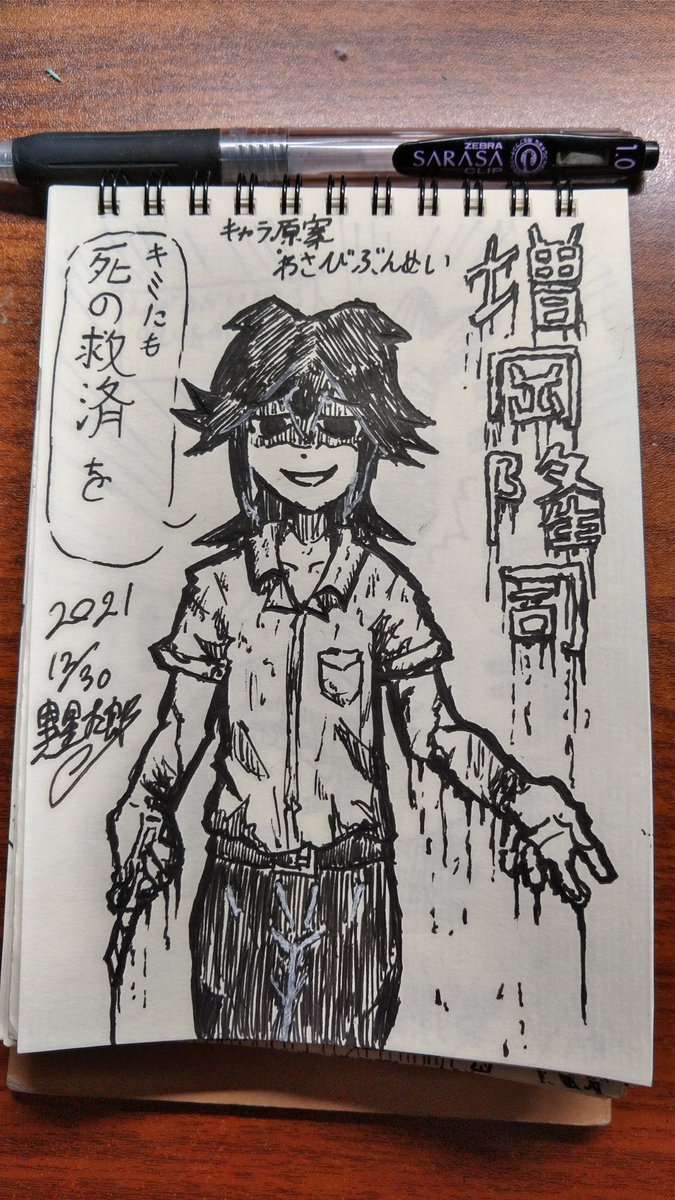 ZEBRA
SARASA
CLIP
1.0
キャラ原案
わさびぶんめい
増岡隆司
キミにも
死の救済を
2021
12/30